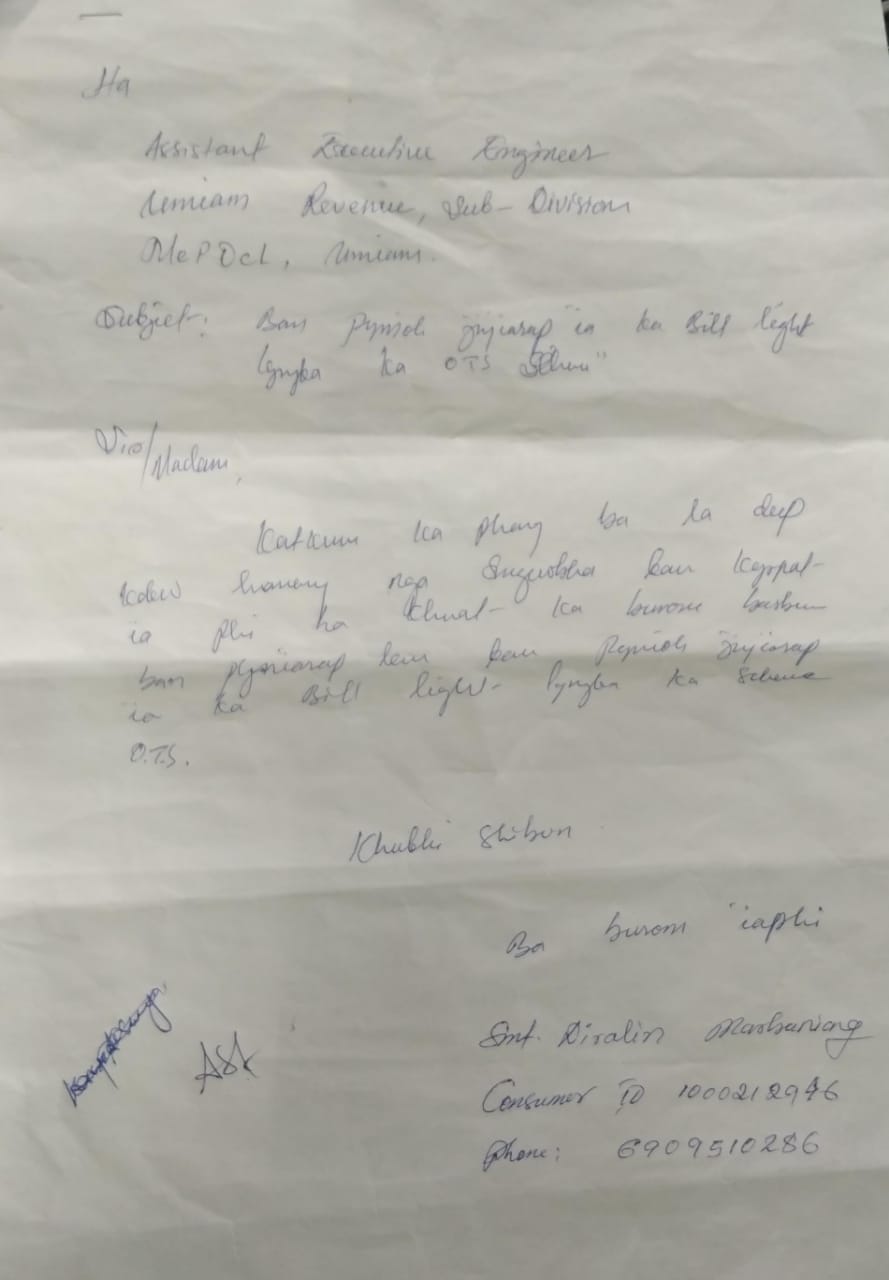 Ha
Assistant Executive Engineer
Umiam Revenue, Sub-Division
MePDCL, Umiam.
Subject: Ban Pynioh jingiarap ïa ka Bill light
lyngba ka OTS Scheme"
Sir/Madam,
Katkum ka phang ba la dep
kdew haneng nga
ïa phi ha khmat ka burom barbun
ban pyniarap lem ban Pynioh jingiarap
ïa ka Bill light lyngba ka Scheme
O.T.S.
Khublei Shibun
Ba burom ïaphi
Smt. Diralin Marbaniang
Consumer ID 1000212946
Phone: 6909510286